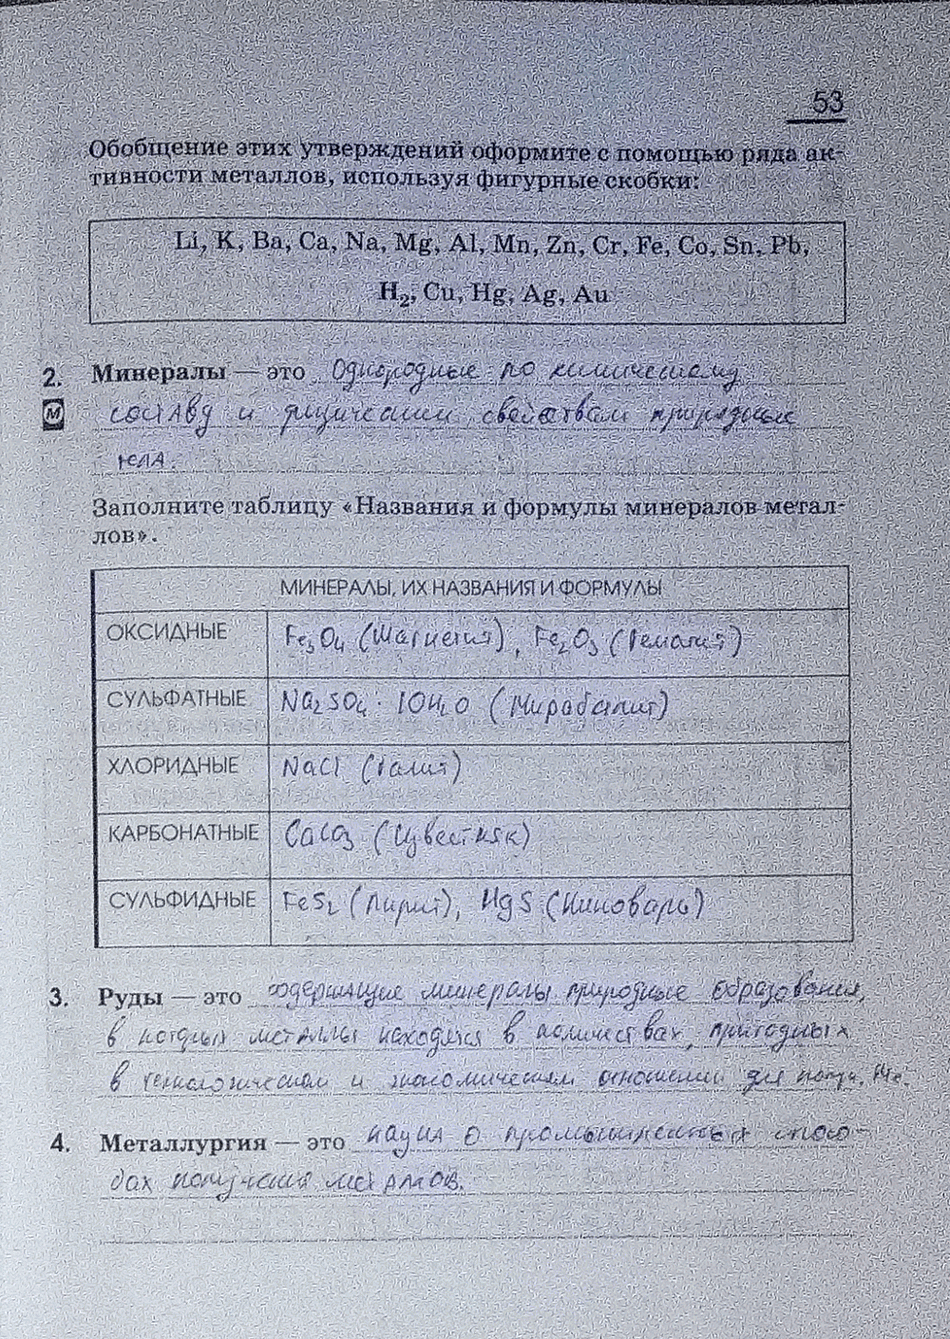 53
Обобщение этих утверждений оформите с помощью ряда ак-
тивности металлов, используя фигурные скобки:
Li, K, Ba, Ca, Na, Mg, Al, Mn, Zn, Cr, Fe, Co, Sn, Pb,
H₂, Cu, Hg, Ag, Au
2. Минералы — это однородные по химическому
М составу и физическим свойствам природные
тела.
Заполните таблицу «Названия и формулы минералов метал-
лов».
МИНЕРАЛЫ, ИХ НАЗВАНИЯ И ФОРМУЛЫ
ОКСИДНЫЕ Fe₃O₄ (Магнетит), Fe₂O₃ (Гематит)
СУЛЬФАТНЫЕ Na₂SO₄ · 10H₂O (Мирабилит)
ХЛОРИДНЫЕ NaCl (Галит)
КАРБОНАТНЫЕ CaCO₃ (Известняк)
СУЛЬФИДНЫЕ FeS₂ (Пирит), HgS (Киноварь)
3. Руды — это содержащие минералы природные образования,
в которых металлы находятся в количествах, пригодных
в технологическом и экономическом отношении для получ. Me.
4. Металлургия — это наука о промышленных спосо-
бах получения металлов.